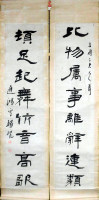 比物屬事離辭連類
頓足起舞抗音高歌